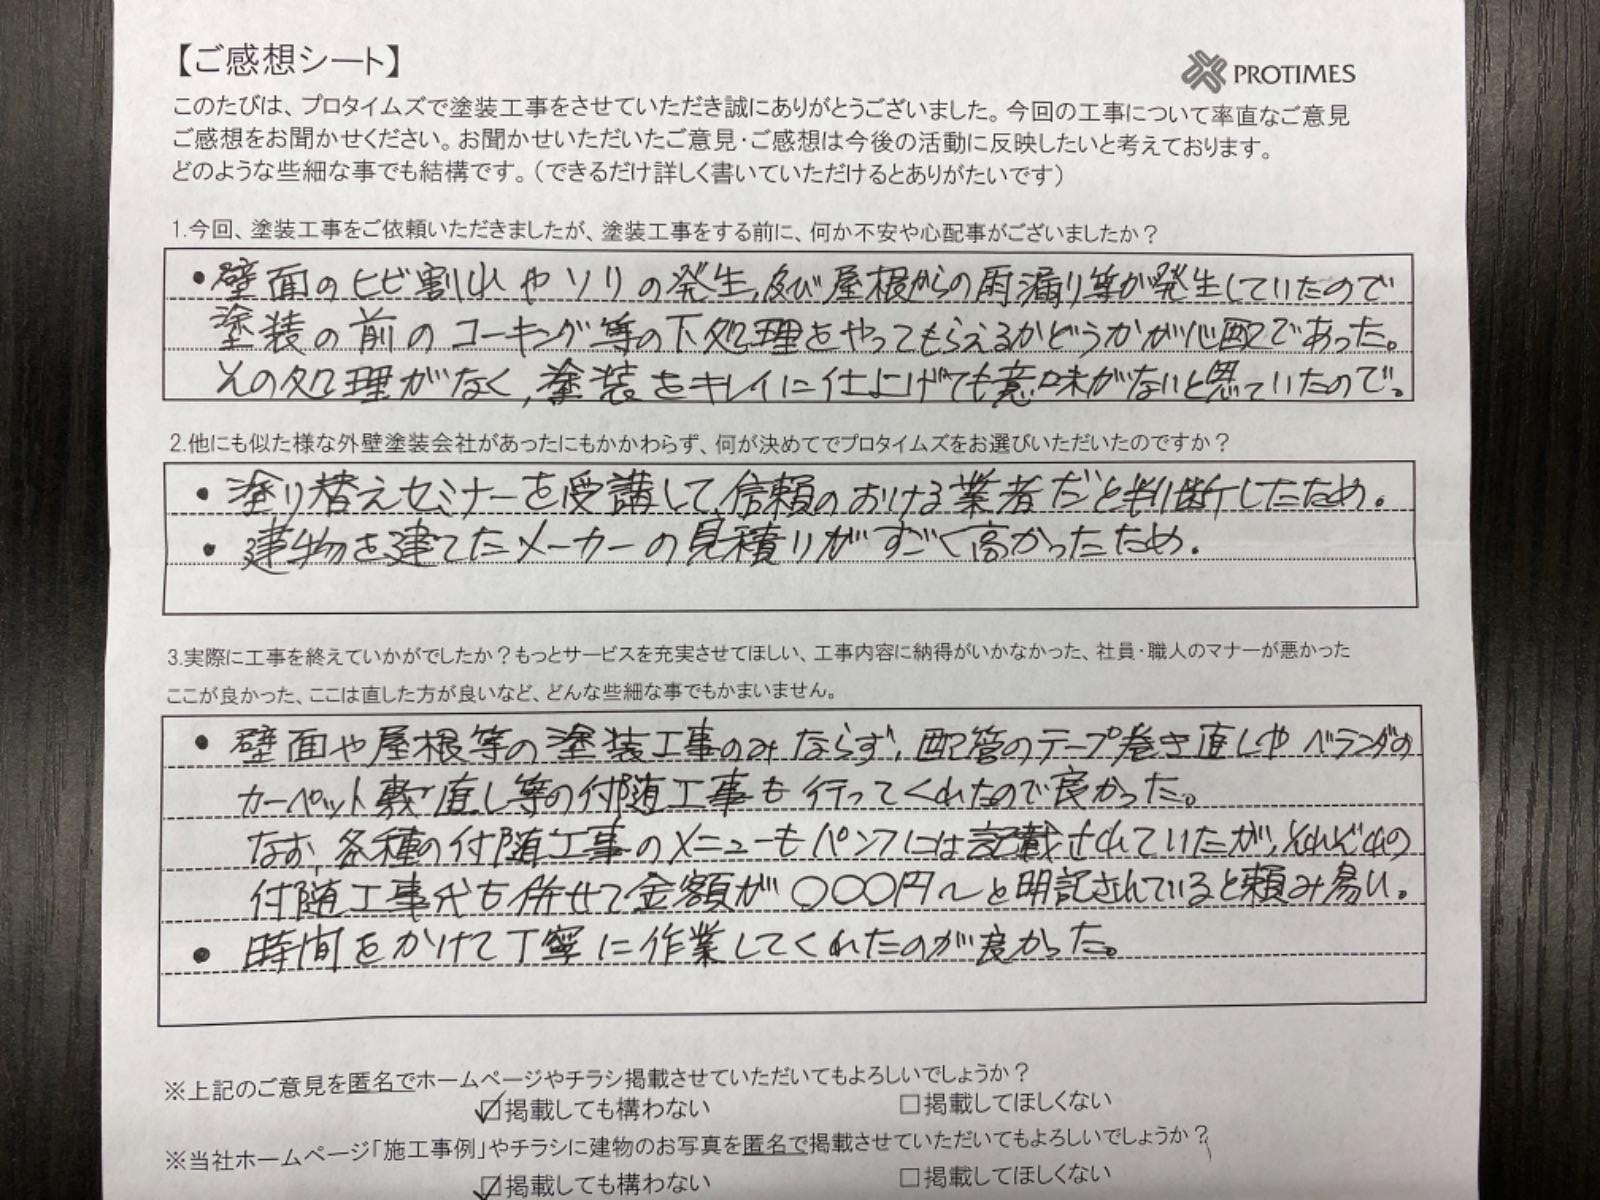 【ご感想シート】
PROTIMES
このたびは、プロタイムズで塗装工事をさせていただき誠にありがとうございました。今回の工事について率直なご意見
ご感想をお聞かせください。お聞かせいただいたご意見・ご感想は今後の活動に反映したいと考えております。
どのような些細な事でも結構です。(できるだけ詳しく書いていただけるとありがたいです)
1.今回、塗装工事をご依頼いただきましたが、塗装工事をする前に、何か不安や心配事がございましたか?
・壁面のヒビ割れやソリの発生、及び屋根からの雨漏り等が発生していたので
塗装の前のコーキング等の下処理をやってもらえるかどうかが心配であった。
その処理がなく、塗装をキレイに仕上げても意味がないと思っていたので。
2.他にも似た様な外壁塗装会社があったにもかかわらず、何が決めてでプロタイムズをお選びいただいたのですか?
・塗り替えセミナーを受講して、信頼のおける業者だと判断したため。
・建物を建てたメーカーの見積りがすごく高かったため.
3.実際に工事を終えていかがでしたか?もっとサービスを充実させてほしい、工事内容に納得がいかなかった、社員・職人のマナーが悪かった
ここが良かった、ここは直した方が良いなど、どんな些細な事でもかまいません。
・壁面や屋根等の塗装工事のみならず、配管のテープ巻き直しや ベランダの
カーペット敷直し等の付随工事も行ってくれたので良かった。
なお、各種の付随工事のメニューもパンフには記載されていたが、それぞれの
付随工事代も併せて金額が○○○円〜と明記されていると頼み易い。
・時間をかけて丁寧に作業してくれたのが良かった。
※上記のご意見を匿名でホームページやチラシ掲載させていただいてもよろしいでしょうか?
☑掲載しても構わない □掲載してほしくない
※当社ホームページ「施工事例」やチラシに建物のお写真を匿名で掲載させていただいてもよろしいでしょうか?
☑掲載しても構わない □掲載してほしくない